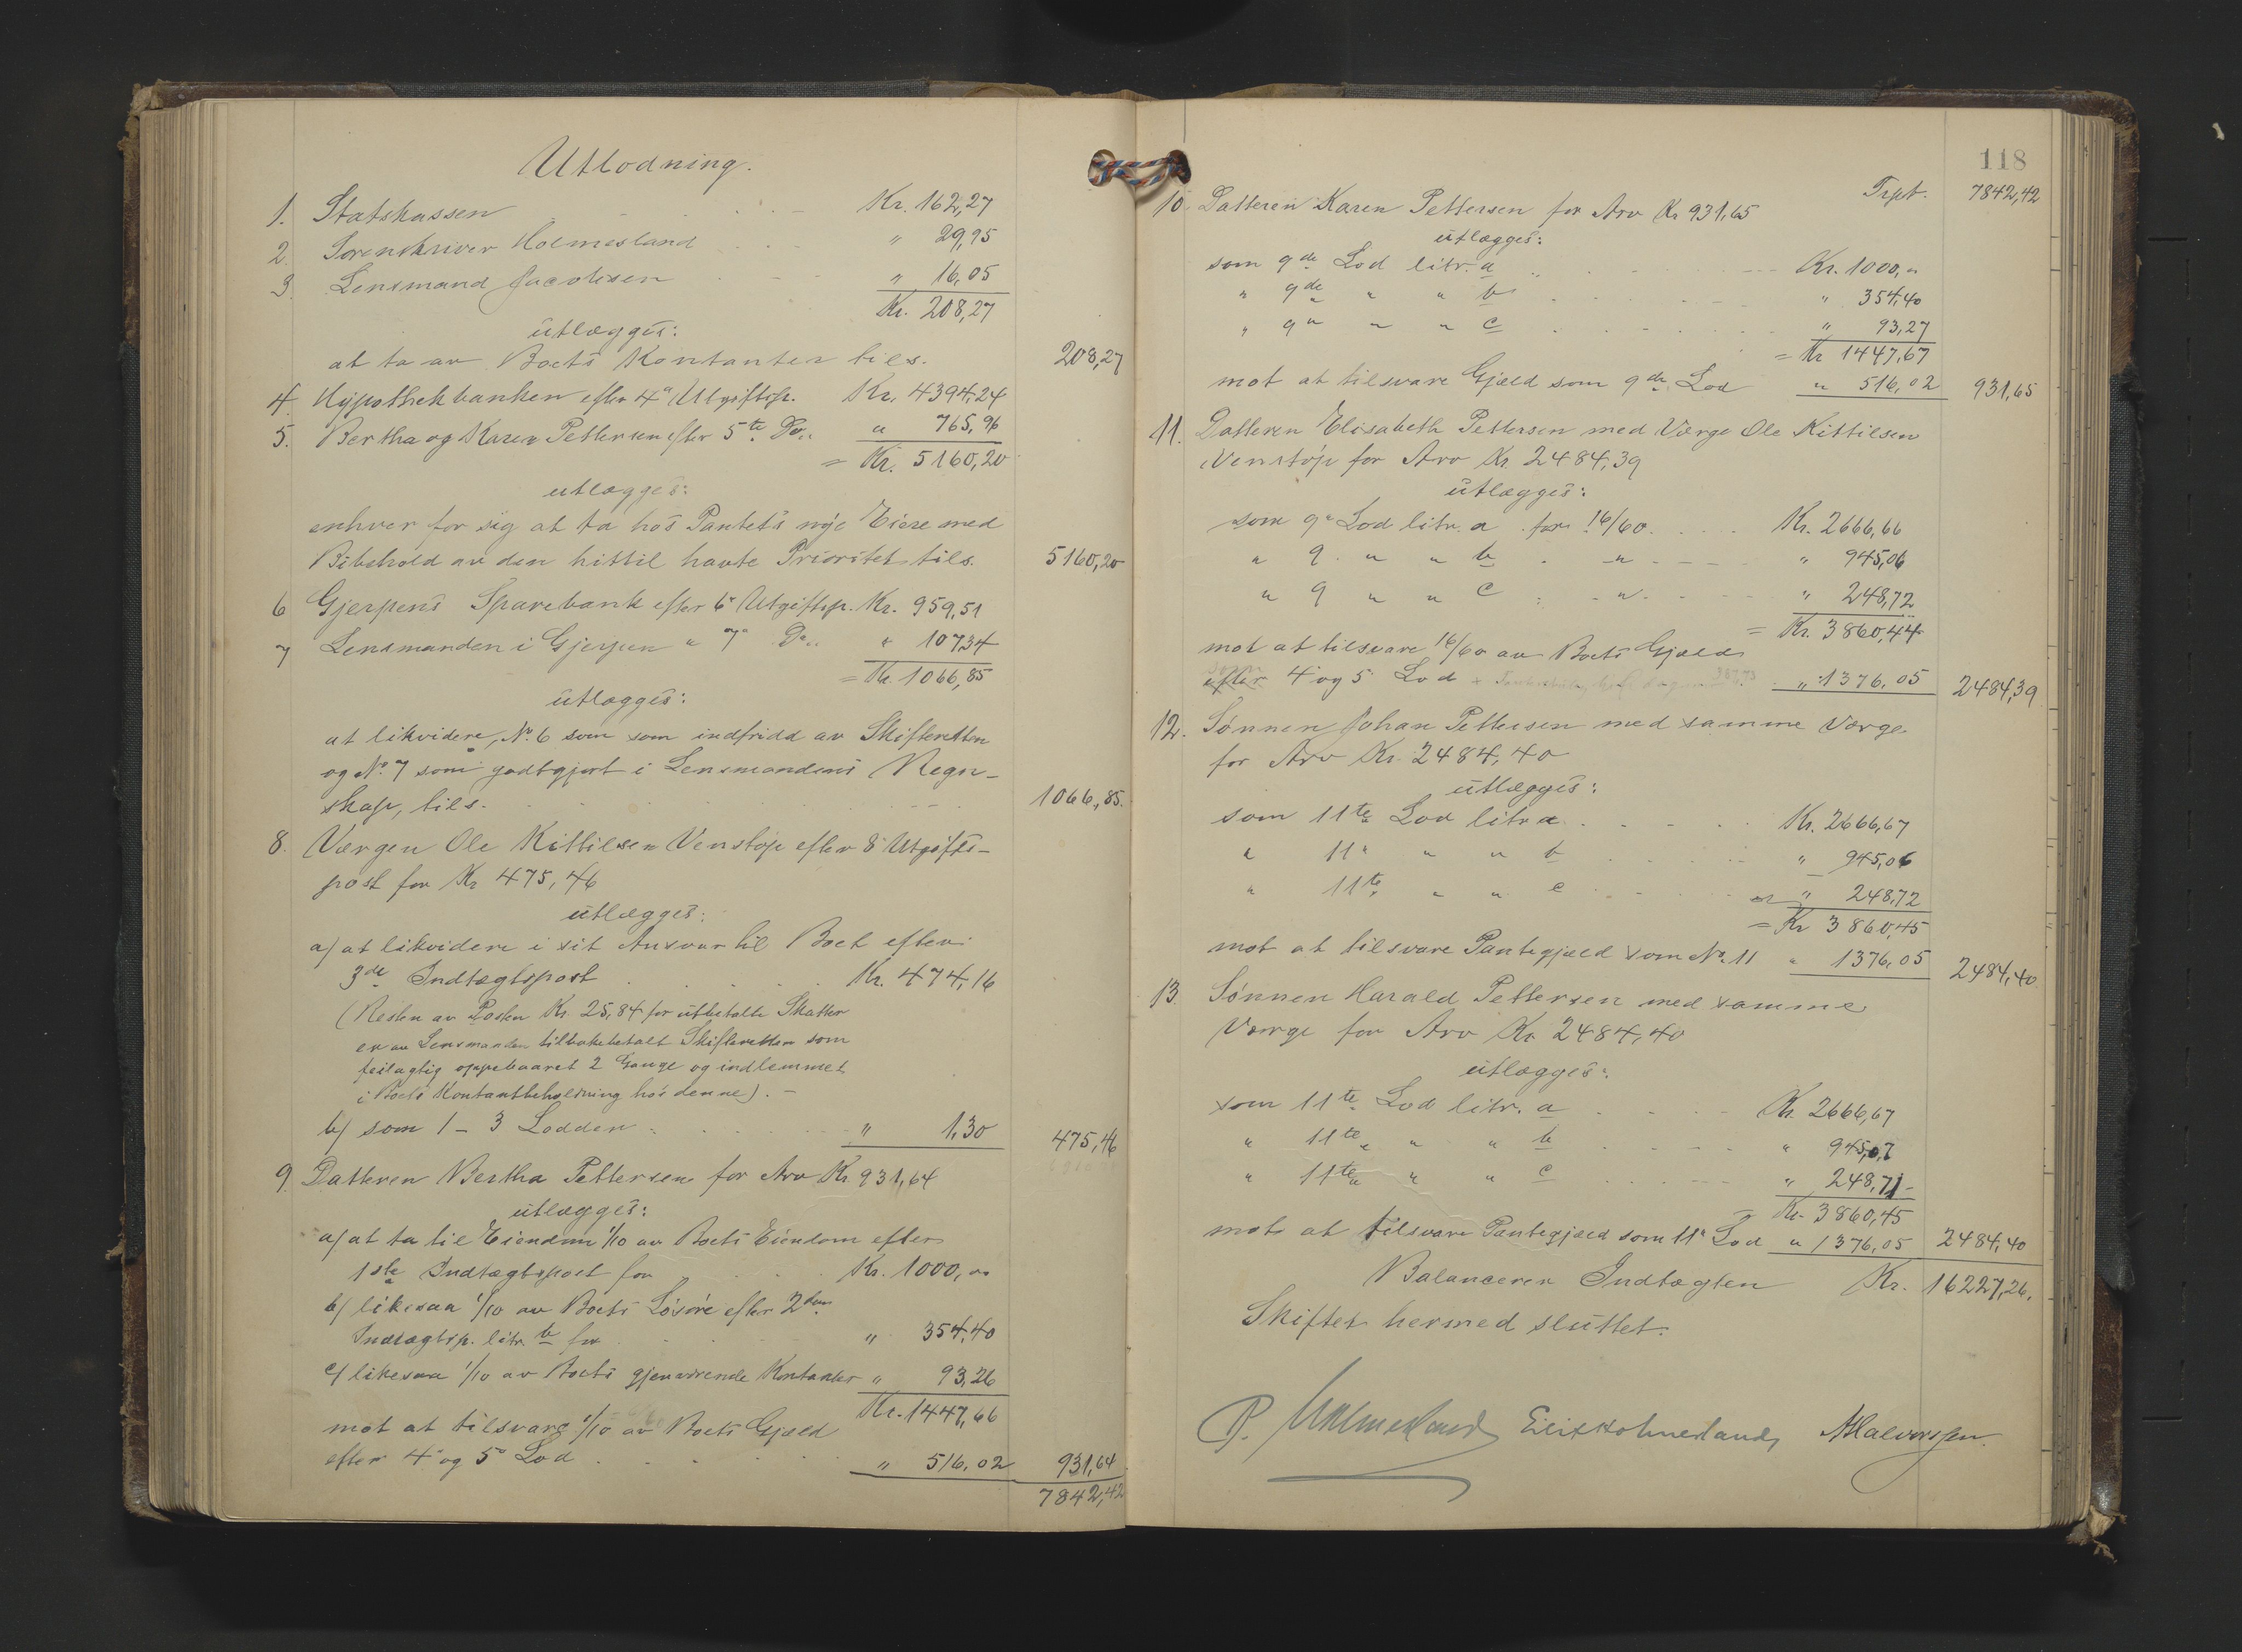 Utlodning.
1. Statskassen . . . Kr. 162,27
2. Sorenskriver Holmesland . . . " 29,95
3. Lensmand Jacobsen . . . " 16,05
Kr. 208,27
utlægges:
at ta av Boets Kontanter tils. 208,27
4. Hypothekbanken efter 4de Utgiftsp. Kr. 4394,24
5. Bertha og Karen Pettersen efter 5te Do. " 765,96
= Kr. 5160,20
utlægges:
enhver for sig at ta hos Pantets nye Eiere med
Bibehold av den hittil havte Prioritet tils. 5160,20
6 Gjerpens Sparebank efter 6" Utgiftsp. Kr. 959,51
7 Lensmanden i Gjerpen " 7" Do. " 107,34
= Kr. 1066,85
utlægges:
at likvidere, No. 6 som som indfridd av Skifteretten
og No. 7 som godtgjort i Lensmandens Regn-
skap, tils. . . . 1066,85.
8. Værgen Ole Kittilsen Venstøp efter 8" Utgifts-
post for Kr 475,46
utlægges:
a) at likvidere i sit Ansvar til Boet efter
3de Indtægtspost . . . Kr. 474,16
(Resten av Posten Kr. 25,84 for utbetalte Skatter
er av Lensmanden tilbakebetalt Skifteretten som
feilagtig oppebaaret 2 Gange og indlemmet
i Boets Kontantbeholdning hos denne). -
b) som 1 - 3 Lodden . . . " 1,30 475,46
9. Datteren Bertha Pettersen for Arv Kr. 931,64
utlægges:
a) at ta til Eiendom 1/10 av Boets Eiendom efter
1ste Indtægtspost for . . Kr. 1000,"
b) likesaa 1/10 av Boets Løsøre efter 2den
Indtægtsp. litr. b for . . . " 354,40
c) likesaa 1/10 av Boets gjenværende Kontanter " 93,26
Kr. 1447,66
mot at tilsvare 1/10 av Boets Gjæld
efter 4" og 5" Lod . . . " 516,02 931,64
7842,42
118
Trpt. 7842,42
10. Datteren Karen Pettersen for Arv Kr 931,65
utlægges:
som 9de Lod litr. a . . . Kr. 1000,"
" 9de " " b . . . " 354,40
" 9" " " c . . . " 93,27
= Kr 1447,67
mot at tilsvare Gjæld som 9de Lod " 516,02 931,65
11. Datteren Elisabeth Pettersen med Værge Ole Kittilsen
Venstøp for Arv Kr. 2484,39
utlægges:
som 9" Lod litr. a for 16/60 . . . Kr. 2666,66
" 9. " " b . " . . . " 945,06
" 9 " " c . " . . . " 248,72
= Kr. 3860,44
mot at tilsvare 16/60 av Boets Gjæld
som
efter 4 og 5 Lod " 1376,05 2484,39
12. Sønnen Johan Pettersen med samme Værge
for Arv Kr. 2484,40
utlægges:
som 11te Lod litr a . . . Kr. 2666,67
" 11" " " b . . . " 945,06
" 11te " " c . . . " 248,72
= Kr 3860,45
mot at tilsvare Pantegjæld som No. 11 " 1376,05 2484,40
13. Sønnen Harald Pettersen med samme
Værge for Arv Kr 2484,40
utlægges:
som 11te Lod litr. a . . . Kr 2666,67
" 11te " " b . . . " 945,07
" 11te " " c . . . " 248,71
= Kr. 3860,45
mot at tilsvare Pantegjæld som 11" Lod " 1376,05 2484,40
Balancerer Indtægten Kr. 16227,26.
Skiftet hermed sluttet.
P. Holmesland Holmesland AHalvorsen.